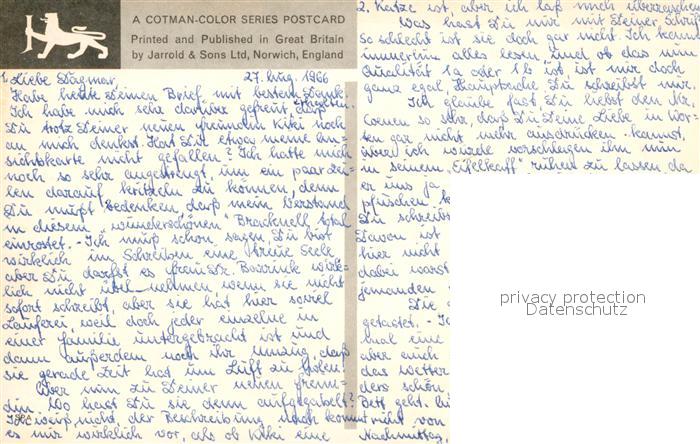 A COTMAN-COLOR SERIES POSTCARD
Printed and Published in Great Britain
by Jarrold & Sons Ltd, Norwich, England
1. Liebe Dagmar, 27. Aug. 1966
Habe heute Deinen Brief mit bestem Dank erhalten.
Ich habe mich sehr darüber gefreut, daß
Du trotz Deiner neuen Freundin Kiki noch
an mich denkst. Hat Dir etwa meine An-
sichtskarte nicht gefallen? Ich hatte mich
noch so sehr angestrengt, um ein paar Zei-
len darauf kritzeln zu können, denn
Du mußt bedenken, daß mein Verstand
in diesem "wunderschönen" Bracknell total
einrostet. - Ich muß schon sagen, Du bist
wirklich im Schreiben eine treue Seele
aber Du darfst es Frau Dr. wirk-
lich nicht übel-nehmen wenn sie nicht
sofort schreibt, aber sie hat hier soviel
Lauferei, weil doch jeder einzelne in
einer Familie untergebracht ist und
dann außerdem noch ihr Umzug, daß
sie gerade Zeit hat um Luft zu holen!
Aber nun zu Deiner neuen Freun-
din. Wo hast Du sie denn aufgegabelt?
Ich weiß nicht, der Beschreibung nach kommt
es mir wirklich vor, als ob Kiki eine
2. Katze ist, aber ich laß mich überraschen
Was hast Du nur mit Deiner Schrift
so schlecht ist sie doch gar nicht. Ich kann
immerhin alles lesen, und ob das nun
Qualität 1a oder 1b ist, ist mir doch
ganz egal, Hauptsache Du schreibst mir.
Ich glaube fast, Du liebst den Mr.
so sehr, daß Du Deine Liebe in Wor-
ten gar nicht mehr ausdrücken kannst,
aber ich würde vorschlagen ihn nun
in seinem "Eifelkaff" ruhen zu lassen, da
er uns ja
pfuschen
Du schreibst
Davon ist
hier nicht
dabei
jemanden
Die
getastet. Ic
mal eine
aber auch
das Wetter
ders schön
Dett geht hi
nicht von
Nachmittag,
privacy protection
Datenschutz